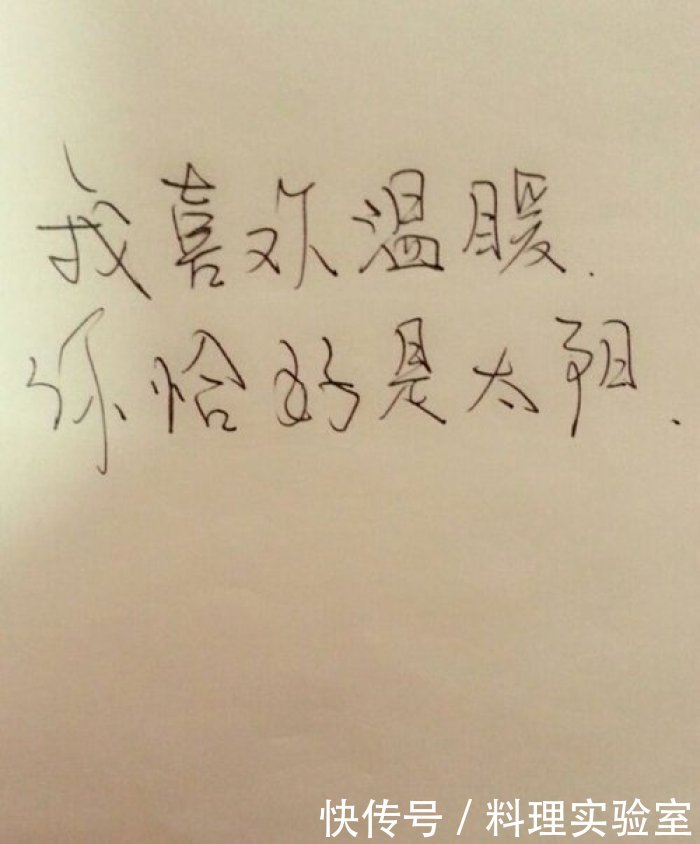 我喜欢温暖.
你恰好是太阳.
快传号 / 料理实验室